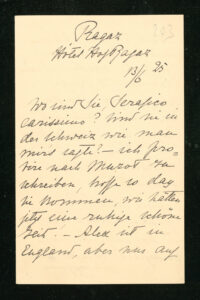 203
Ragaz
Hôtel Hof Ragaz
13/6 25
Wo sind Sie, Serafico
carissimo? Sind Sie in
der Schweiz wie man
mir's sagte? — ich pro-
biere nach Muzot zu
schreiben, hoffe so dazu
zu kommen, wir hätten
jetzt eine ruhige schöne
Zeit. — Alex ist in
England, aber nur auf